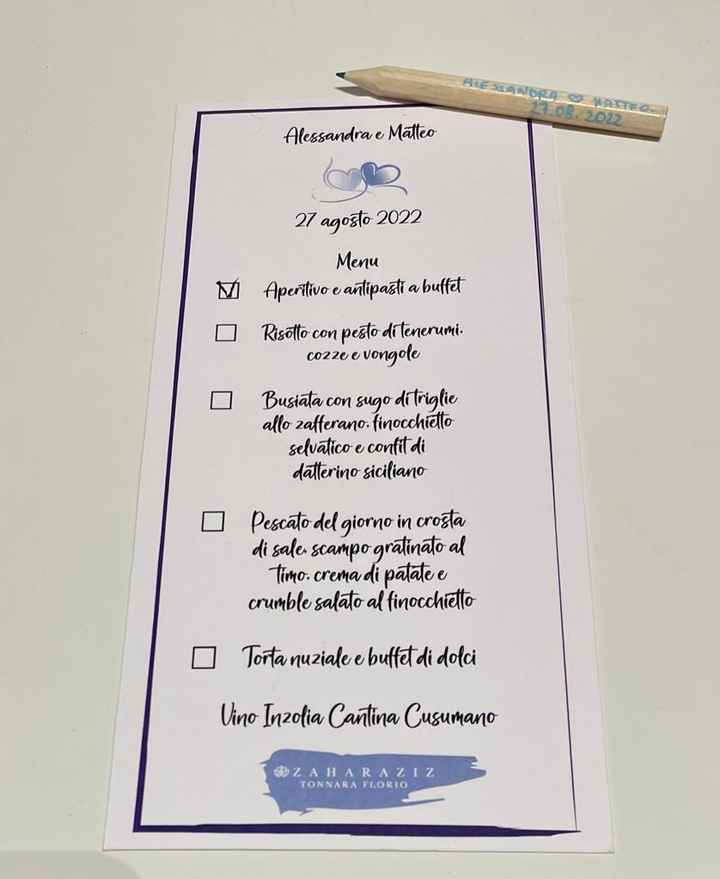 ALESSANDRA ♡ MATTEO
27.08.2022
Alessandra e Matteo
27 agosto 2022
Menu
Aperitivo e antipasti a buffet
Risotto con pesto di tenerumi,
cozze e vongole
Busiata con sugo di triglie
allo zafferano, finocchietto
selvatico e confit di
datterino siciliano
Pescato del giorno in crosta
di sale, scampo gratinato al
timo, crema di patate e
crumble salato al finocchietto
Torta nuziale e buffet di dolci
Vino Inzolia Cantina Cusumano
ZAHARAZIZ
TONNARA FLORIO